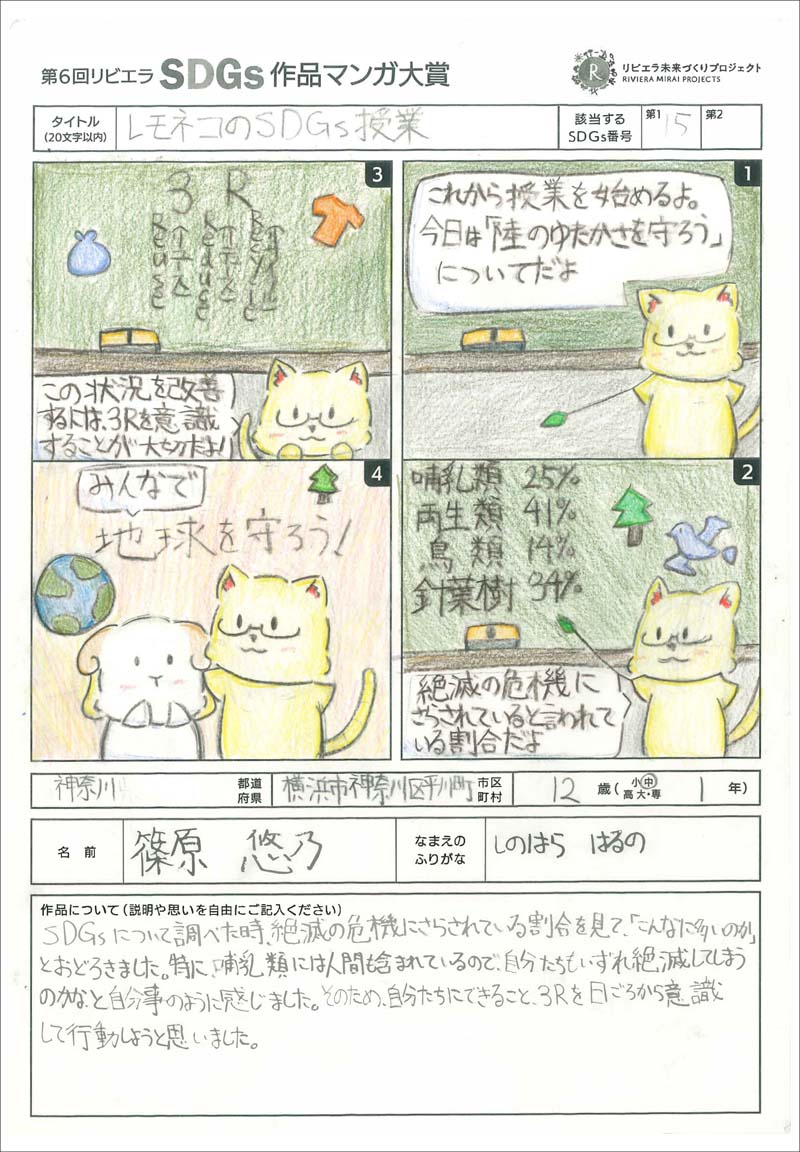 第6回リビエラ SDGs 作品マンガ大賞
リビエラ未来づくりプロジェクト
RIVIERA MIRAI PROJECTS
タイトル
(20文字以内)
レモネコのSDGs授業
該当する
SDGs番号
第1 15 第2
1
これから授業を始めるよ。
今日は「陸のゆたかさを守ろう」
についてだよ
2
哺乳類 25%
両生類 41%
鳥類 14%
針葉樹 34%
絶滅の危機に
さらされていると言われて
いる割合だよ
3
3R
Recycle
Reduce
Reuse
この状況を改善
するには、3Rを意識
することが大切だよ!
4
みんなで
地球を守ろう!
神奈川 都道府県 横浜市神奈川区平川町 市区町村 12歳(小・中・高・大・専 1年)
名前 篠原 悠乃 なまえのふりがな しのはら はるの
作品について(説明や思いを自由にご記入ください)
SDGsについて調べた時、絶滅の危機にさらされている割合を見て、「こんなに多いのか」
とおどろきました。特に、哺乳類には人間も含まれているので、自分たちもいずれ絶滅してしまう
のかな、と自分事のように感じました。そのため、自分たちにできること、3Rを日ごろから意識
して行動しようと思いました。